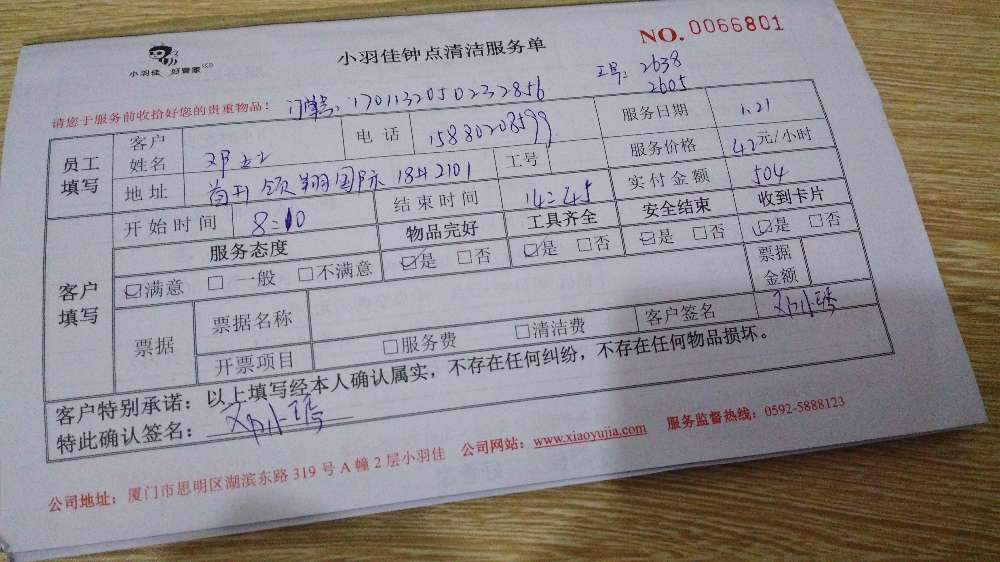 小羽佳 好管家
小羽佳钟点清洁服务单
NO.0066801
请您于服务前收拾好您的贵重物品: 订单号:1701132050232856 工号:2638
2605
员工填写 客户姓名 邓女士 电话 15880208599 服务日期 1.21
地址 首开领翔国际18#2101 工号 服务价格 42元/小时
开始时间 8:10 结束时间 14:45 实付金额 504
客户填写 服务态度 物品完好 工具齐全 安全结束 收到卡片
☑满意 □一般 □不满意 ☑是 □否 ☑是 □否 ☑是 □否 ☑是 □否
票据 票据名称 票据金额
开票项目 □服务费 □清洁费 客户签名 邓小琇
客户特别承诺:以上填写经本人确认属实,不存在任何纠纷,不存在任何物品损坏。
特此确认签名: 邓小琇
公司地址:厦门市思明区湖滨东路319号A幢2层小羽佳 公司网站:www.xiaoyujia.com 服务监督热线:0592-5888123